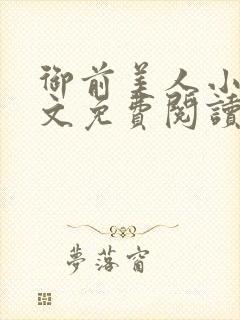 御前美人小
文免費閱讀
夢落窗